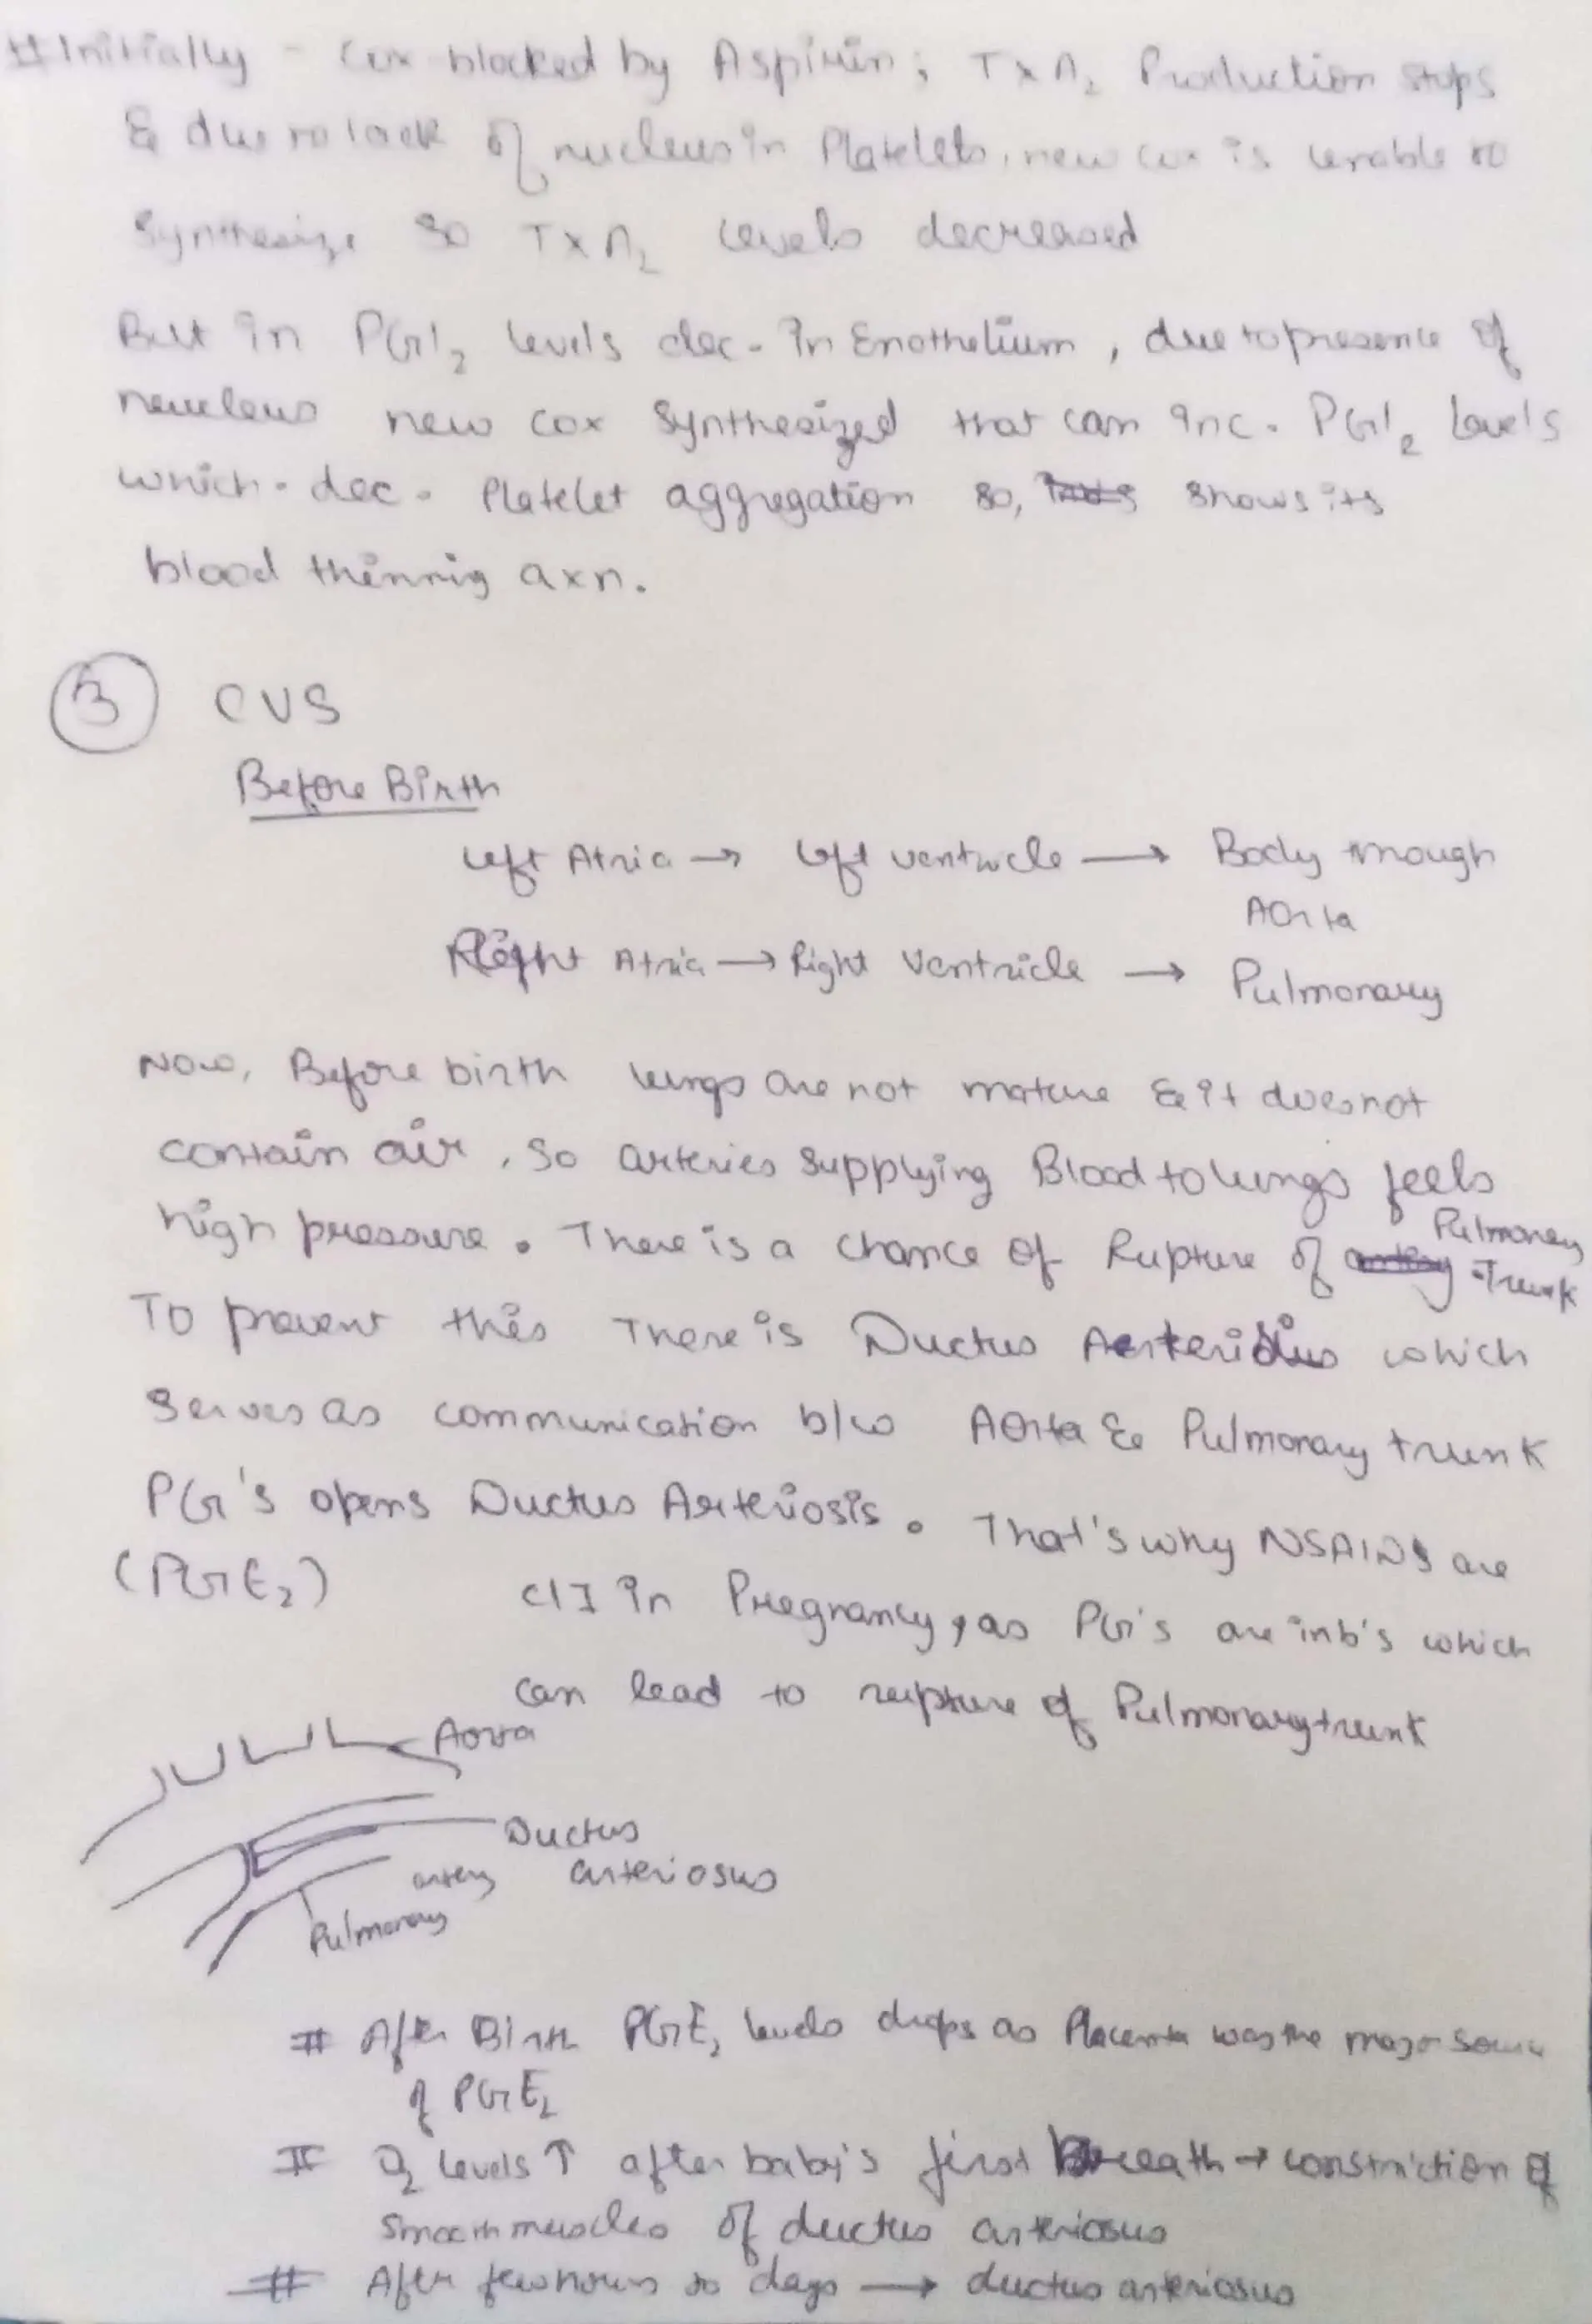 # Initially - Cox blocked by Aspirin; TxA2 Production stops
& due to lack of nucleus in Platelets, new cox is unable to
Synthesize so TxA2 levels decreased
But in PGI2 levels dec. in Enothelium, due to presence of
neucleus new cox synthesized that can inc. PGI2 levels
which dec. Platelet aggregation so, shows its
blood thinnig axn.
3 CVS
Before Birth
Left Atria → Left ventricle → Body through
Aorta
Right Atria → Right Ventricle → Pulmonary
Now, Before birth lungs are not mature & it does not
contain air, so arteries supplying Blood to lungs feels
high pressure. There is a chance of Rupture of Pulmonary
Trunk
To prevent this There is Ductus Arteriosus which
serves as communication b/w Aorta & Pulmonary trunk
PG's opens Ductus Arteriosis. That's why NSAIDS are
(PGE2) CII in Pregnancy, as PG's are inb's which
can lead to rupture of Pulmonary trunk
Aorta
Ductus
arteriosus
artery
Pulmonary
# After Birth PGE2 levels drops as Placenta was the major source
of PGE2
# O2 levels ↑ after baby's first Breath → constriction of
Smooth muscles of ductus arteriosus
# After few hours to days → ductus arteriosus